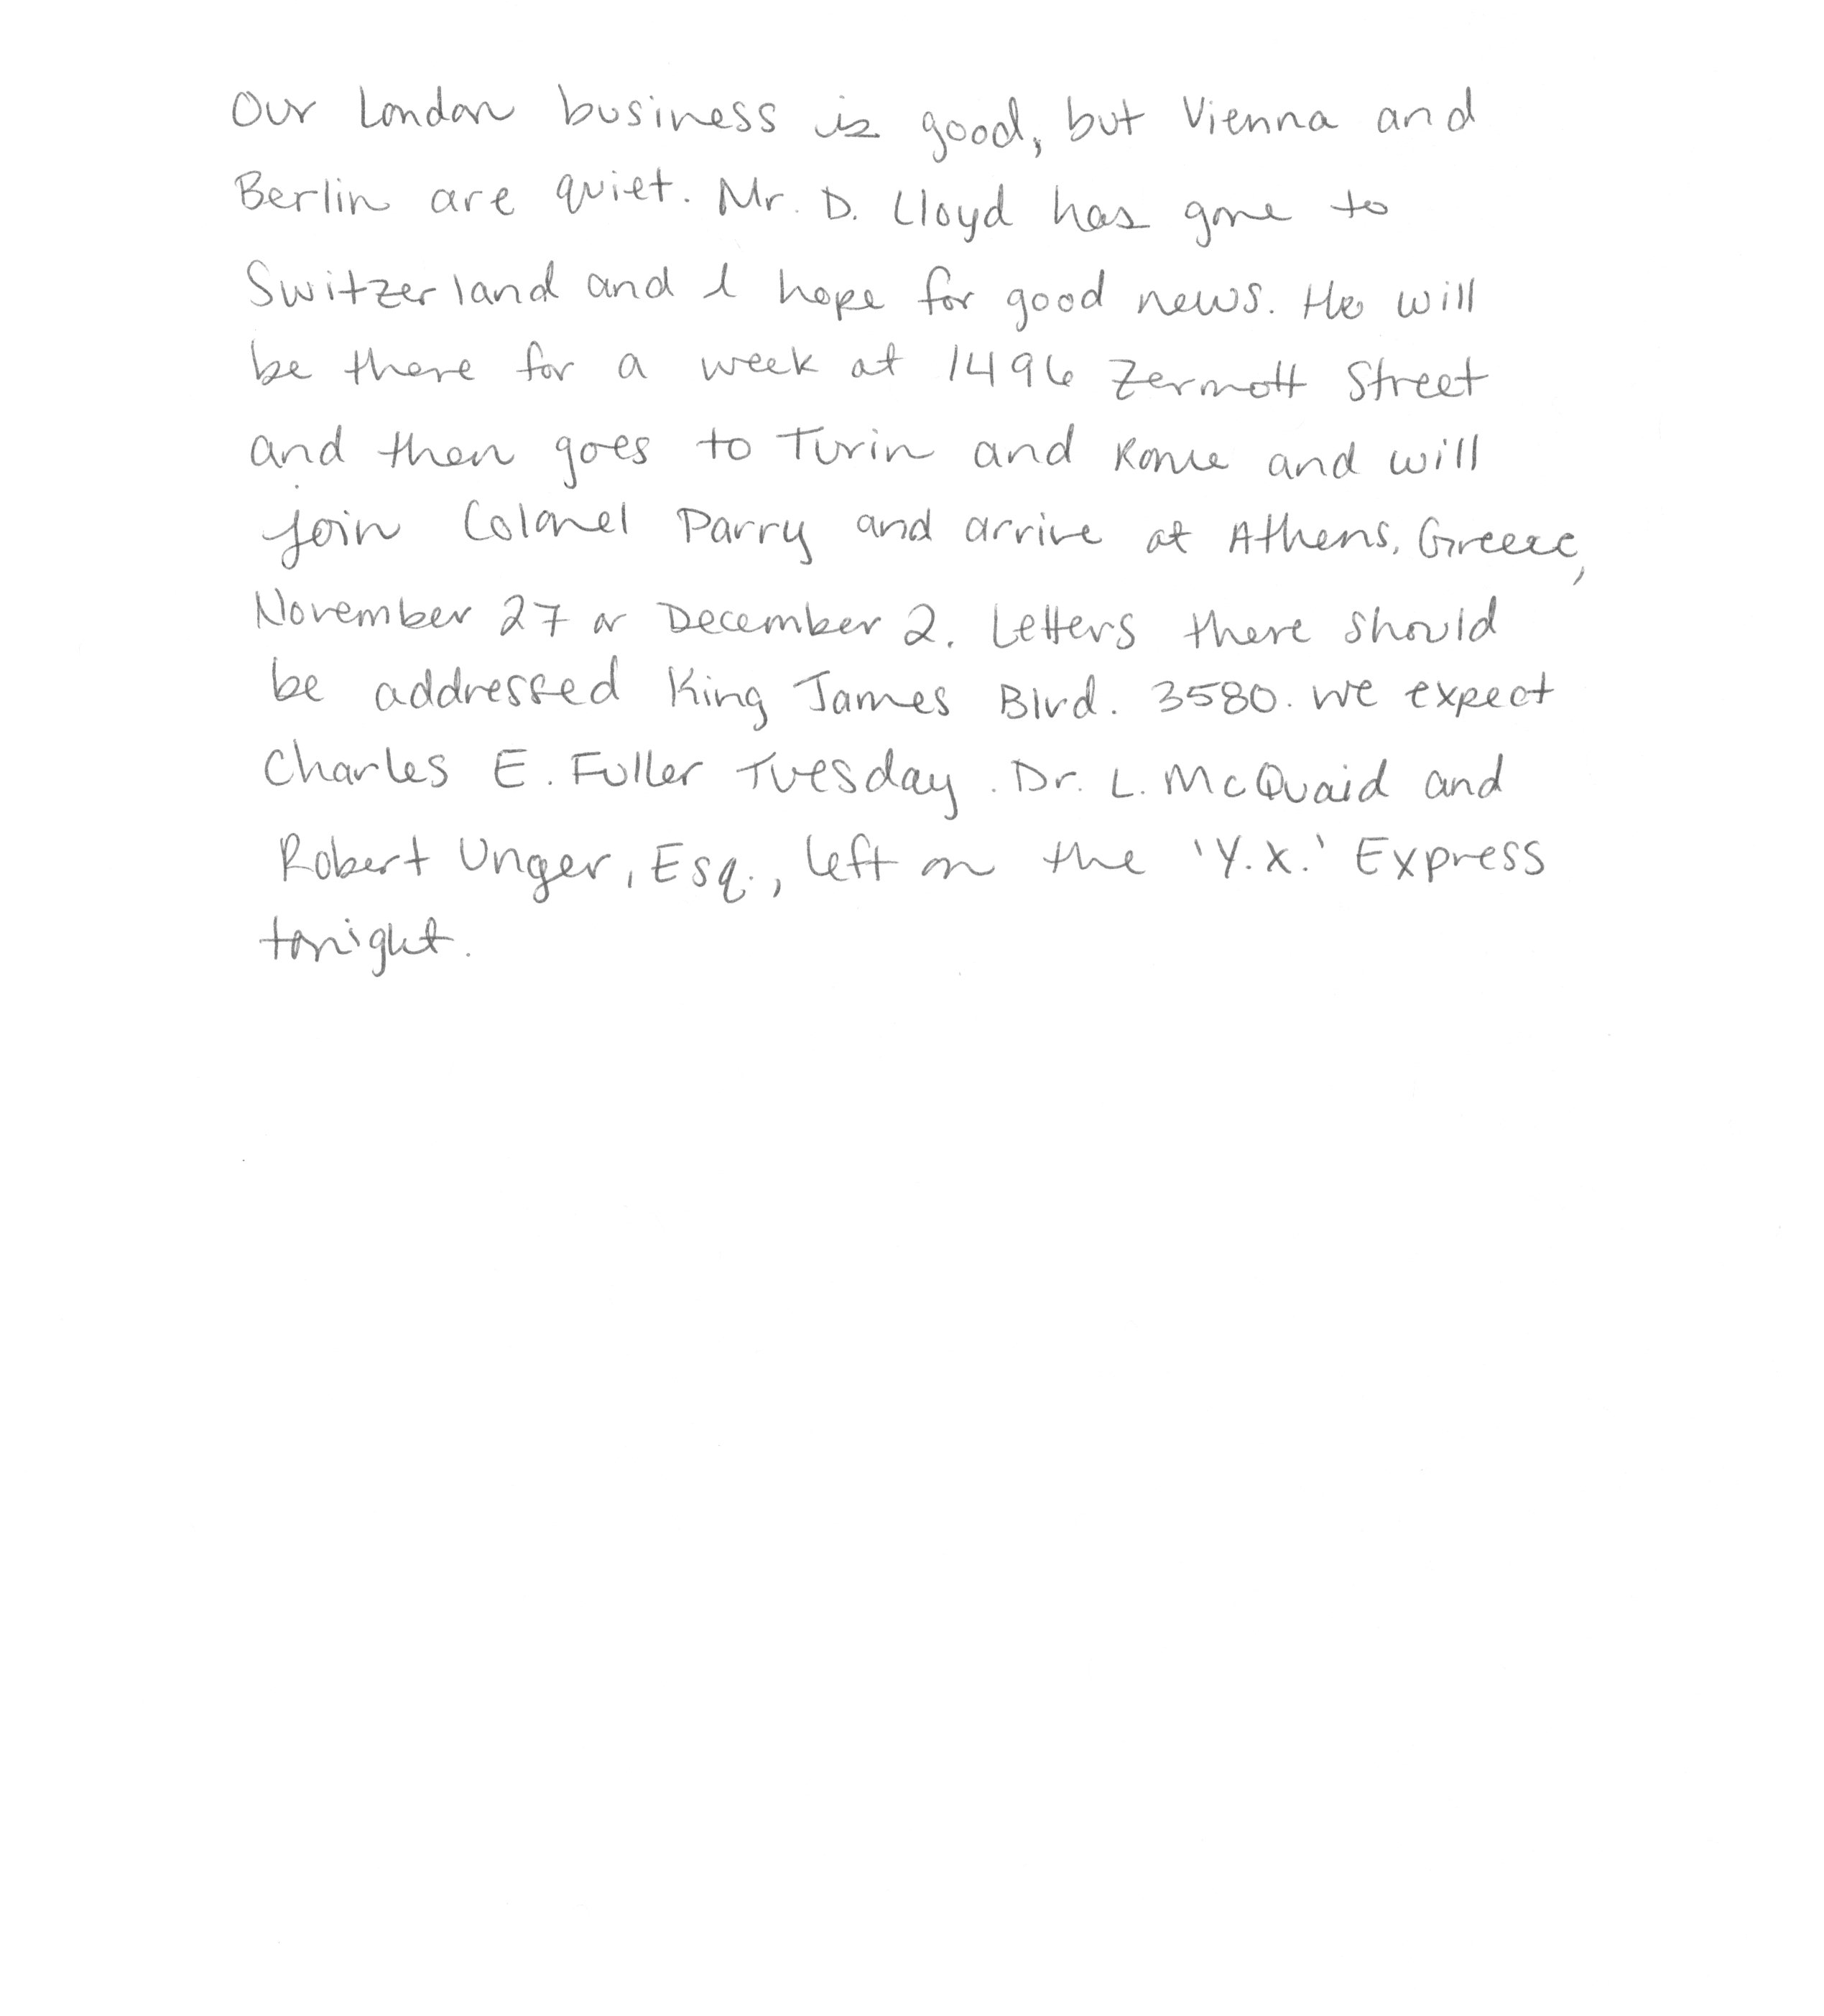 Our London business is good, but Vienna and
Berlin are quiet. Mr. D. Lloyd has gone to
Switzerland and I hope for good news. He will
be there for a week at 1496 Zermott Street
and then goes to Turin and Rome and will
join Colonel Parry and arrive at Athens, Greece,
November 27 or December 2. Letters there should
be addressed King James Blvd. 3580. We expect
Charles E. Fuller Tuesday. Dr. L. McQuaid and
Robert Unger, Esq., left on the 'Y.X.' Express
tonight.